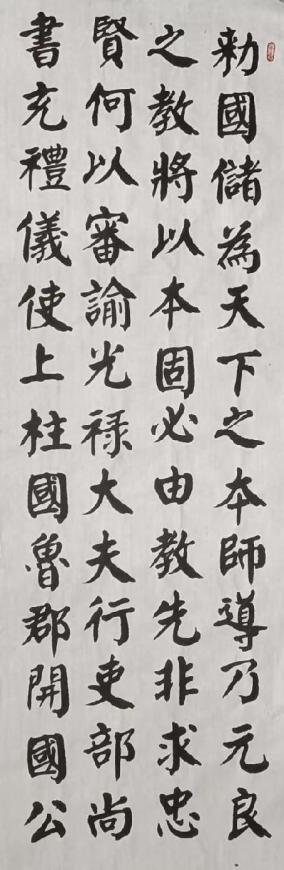 勑國儲為天下之本師導乃元良
之教將以本固必由教先非求忠
賢何以審諭光禄大夫行吏部尚
書充禮儀使上柱國魯郡開國公